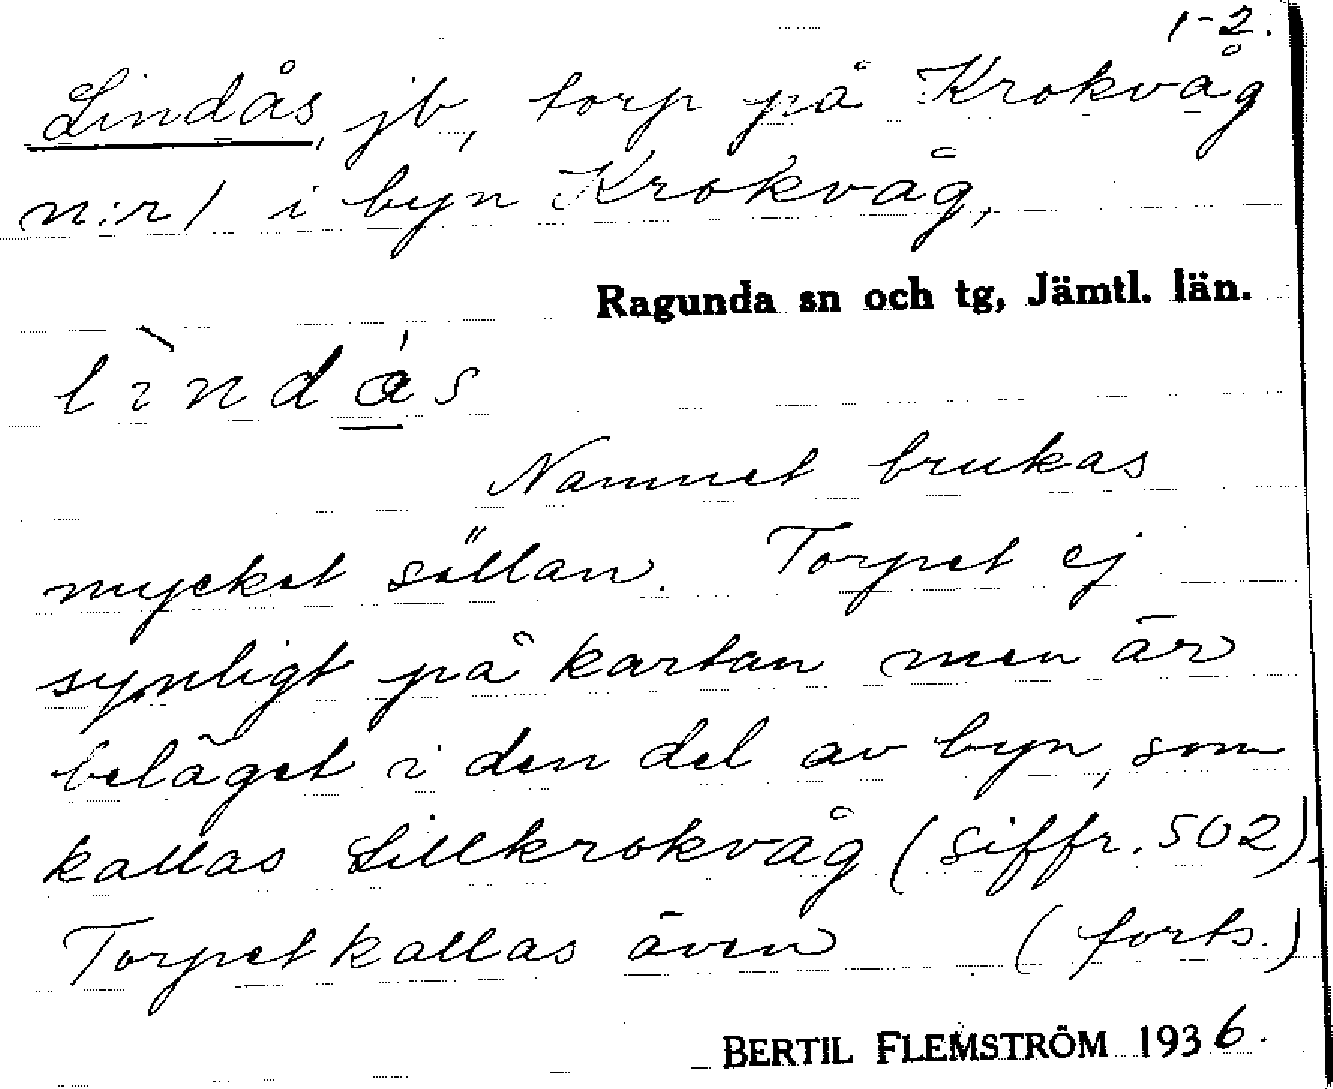 1-2.
Lindås, jb, torp på Krokvåg
n:r 1 i byn Krokvåg,
Ragunda sn och tg, Jämtl. län.
lìndás
Namnet brukas
mycket sällan. Torpet ej
synligt på kartan men är
beläget i den del av byn, som
kallas Lillkrokvåg (siffr. 502).
Torpet kallas även (forts.)
BERTIL FLEMSTRÖM 1936.